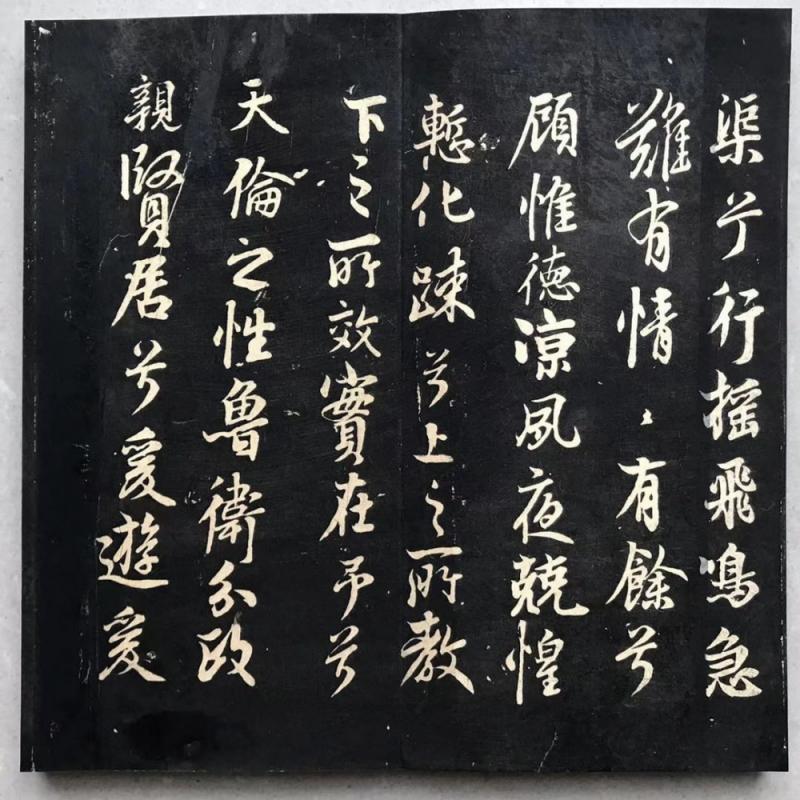 渠兮行摇飛鳴急
難有情〻有餘兮
顧惟德涼夙夜兢惶
慙化踈兮上之所教
下之所效實在予兮
天倫之性魯衛分政
親賢居兮爰遊爰